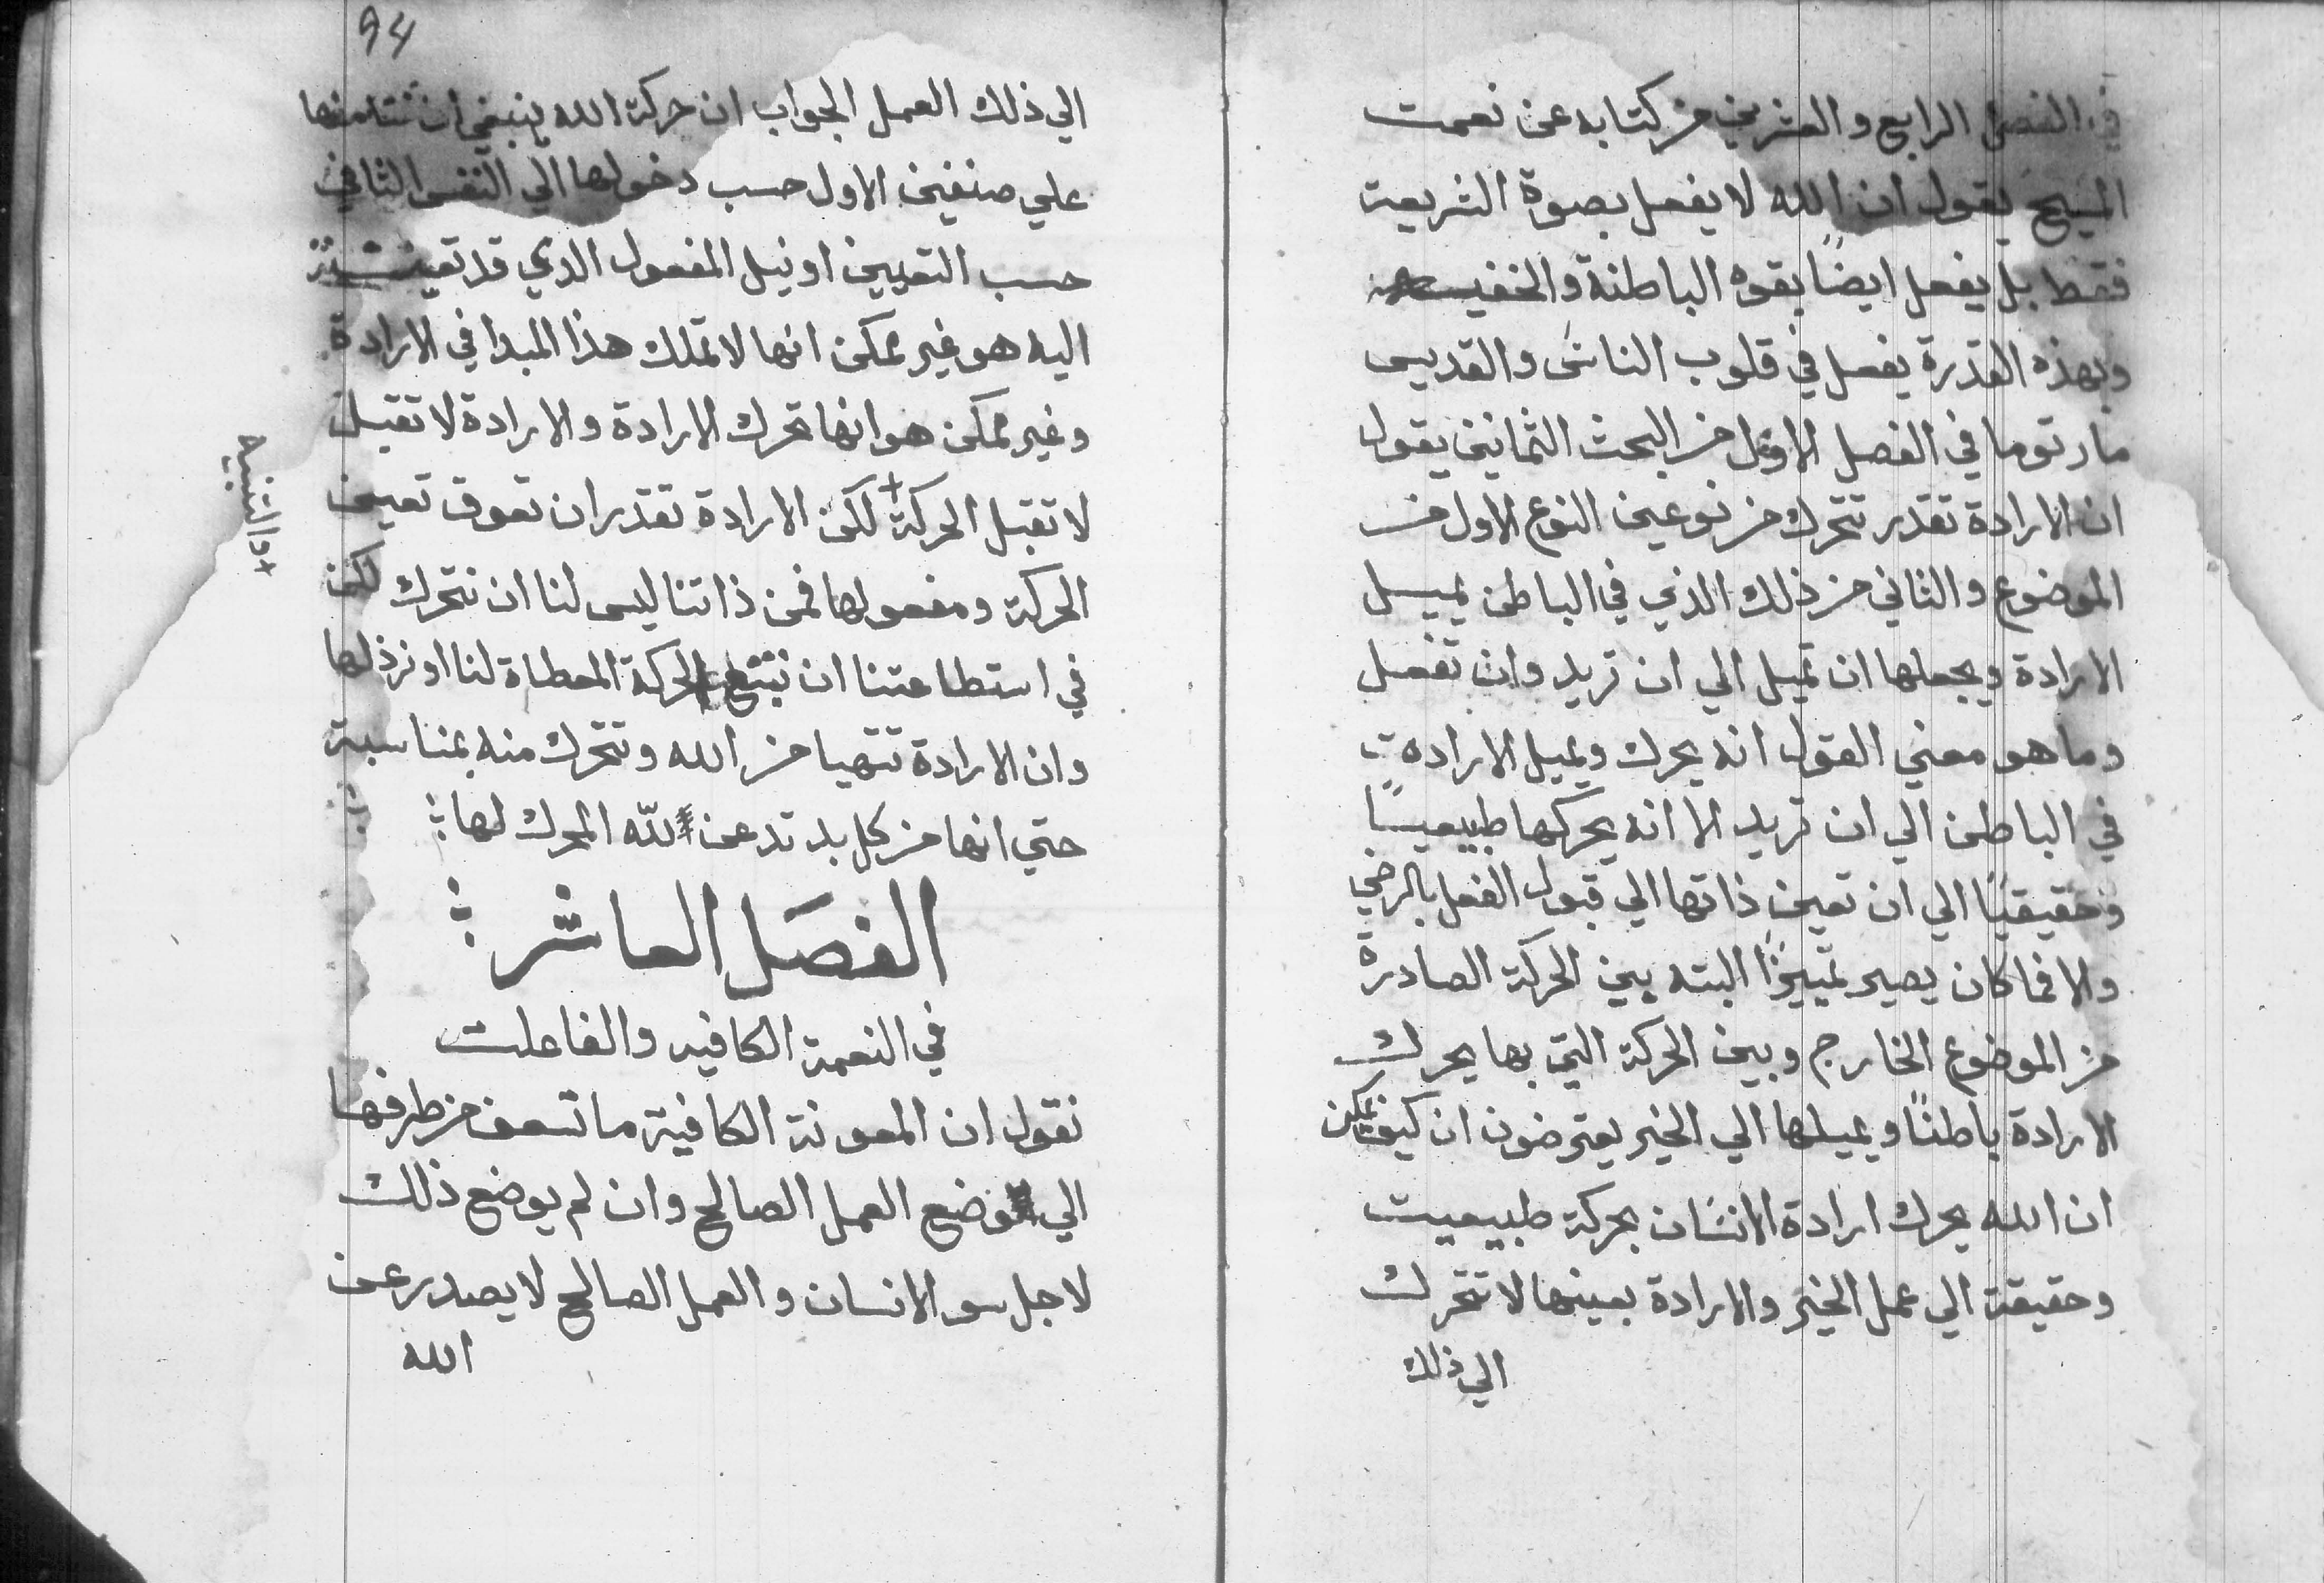 في الفصل الرابع والعشرين من كتابه عن نعمت
المسيح يقول ان الله لا يفعل بصوة الشريعة
فقط بل يفعل ايضاً بقوه الباطنة والخفيـه
وبهذه القدرة يفعل في قلوب الناس والقديس
مار توما في الفصل الاول من البحث الثمانين يقول
ان الارادة تقدر تتحرك من نوعين النوع الاول من
الموضوع والثاني من ذلك الذي في الباطن يميل
الارادة ويجعلها ان تميل الي ان تريد وان تفعل
وما هو معني القول انه يحرك ويميل الاراده
في الباطن الي ان تريد الا انه يحركها طبيعيـًا
وحقيقيًا الي ان تعين ذاتها الي قبول الفعل بالرضي
والا فما كان يصير تمييزًا البته بين الحركة الصادرة
من الموضوع الخارج وبين الحركة التي بها يحرك
الارادة باطنًا ويميلها الي الخير يعترضون ان كيف يمكن
ان الله يحرك ارادة الانسان بحركة طبيعيت
وحقيقة الي عمل الخير والارادة بعينها لا تتحرك
الي ذلك
94
الي ذلك العمل الجواب ان حركة الله ينبغي ان نتامنها
علي صنفين الاول حسب دخولها الي النفس الثاني
حسب التعيين او نيل المفعول الدي قد تعينت
اليه هو غير ممكن انها لا تملك هذا المبدا في الارادة
وغير ممكن هو انها تحرك الارادة والارادة لا تقبل
لا تقبل الحركة + لكن الارادة تقدر ان تعوق تعيين
الحركة ومفعولها فمن ذاتنا ليس لنا ان نتحرك لكن
في استطاعتنا ان نتبع الحركة المعطاة لنا او نرذلها
وان الارادة تتهيا من الله وتتحرك منه بمناسبة
حتي انها من كل بد تدعن لله المحرك لها
+ والتنبيه
الفصَل العاشر
في النعمة الكافيه والفاعلت
نقول ان المعونة الكافية ما تسعف من طرفها
الي وضع العمل الصالح وان لم يوضع ذلك
لاجل سو الانسان والعمل الصالح لا يصدر عن
الله